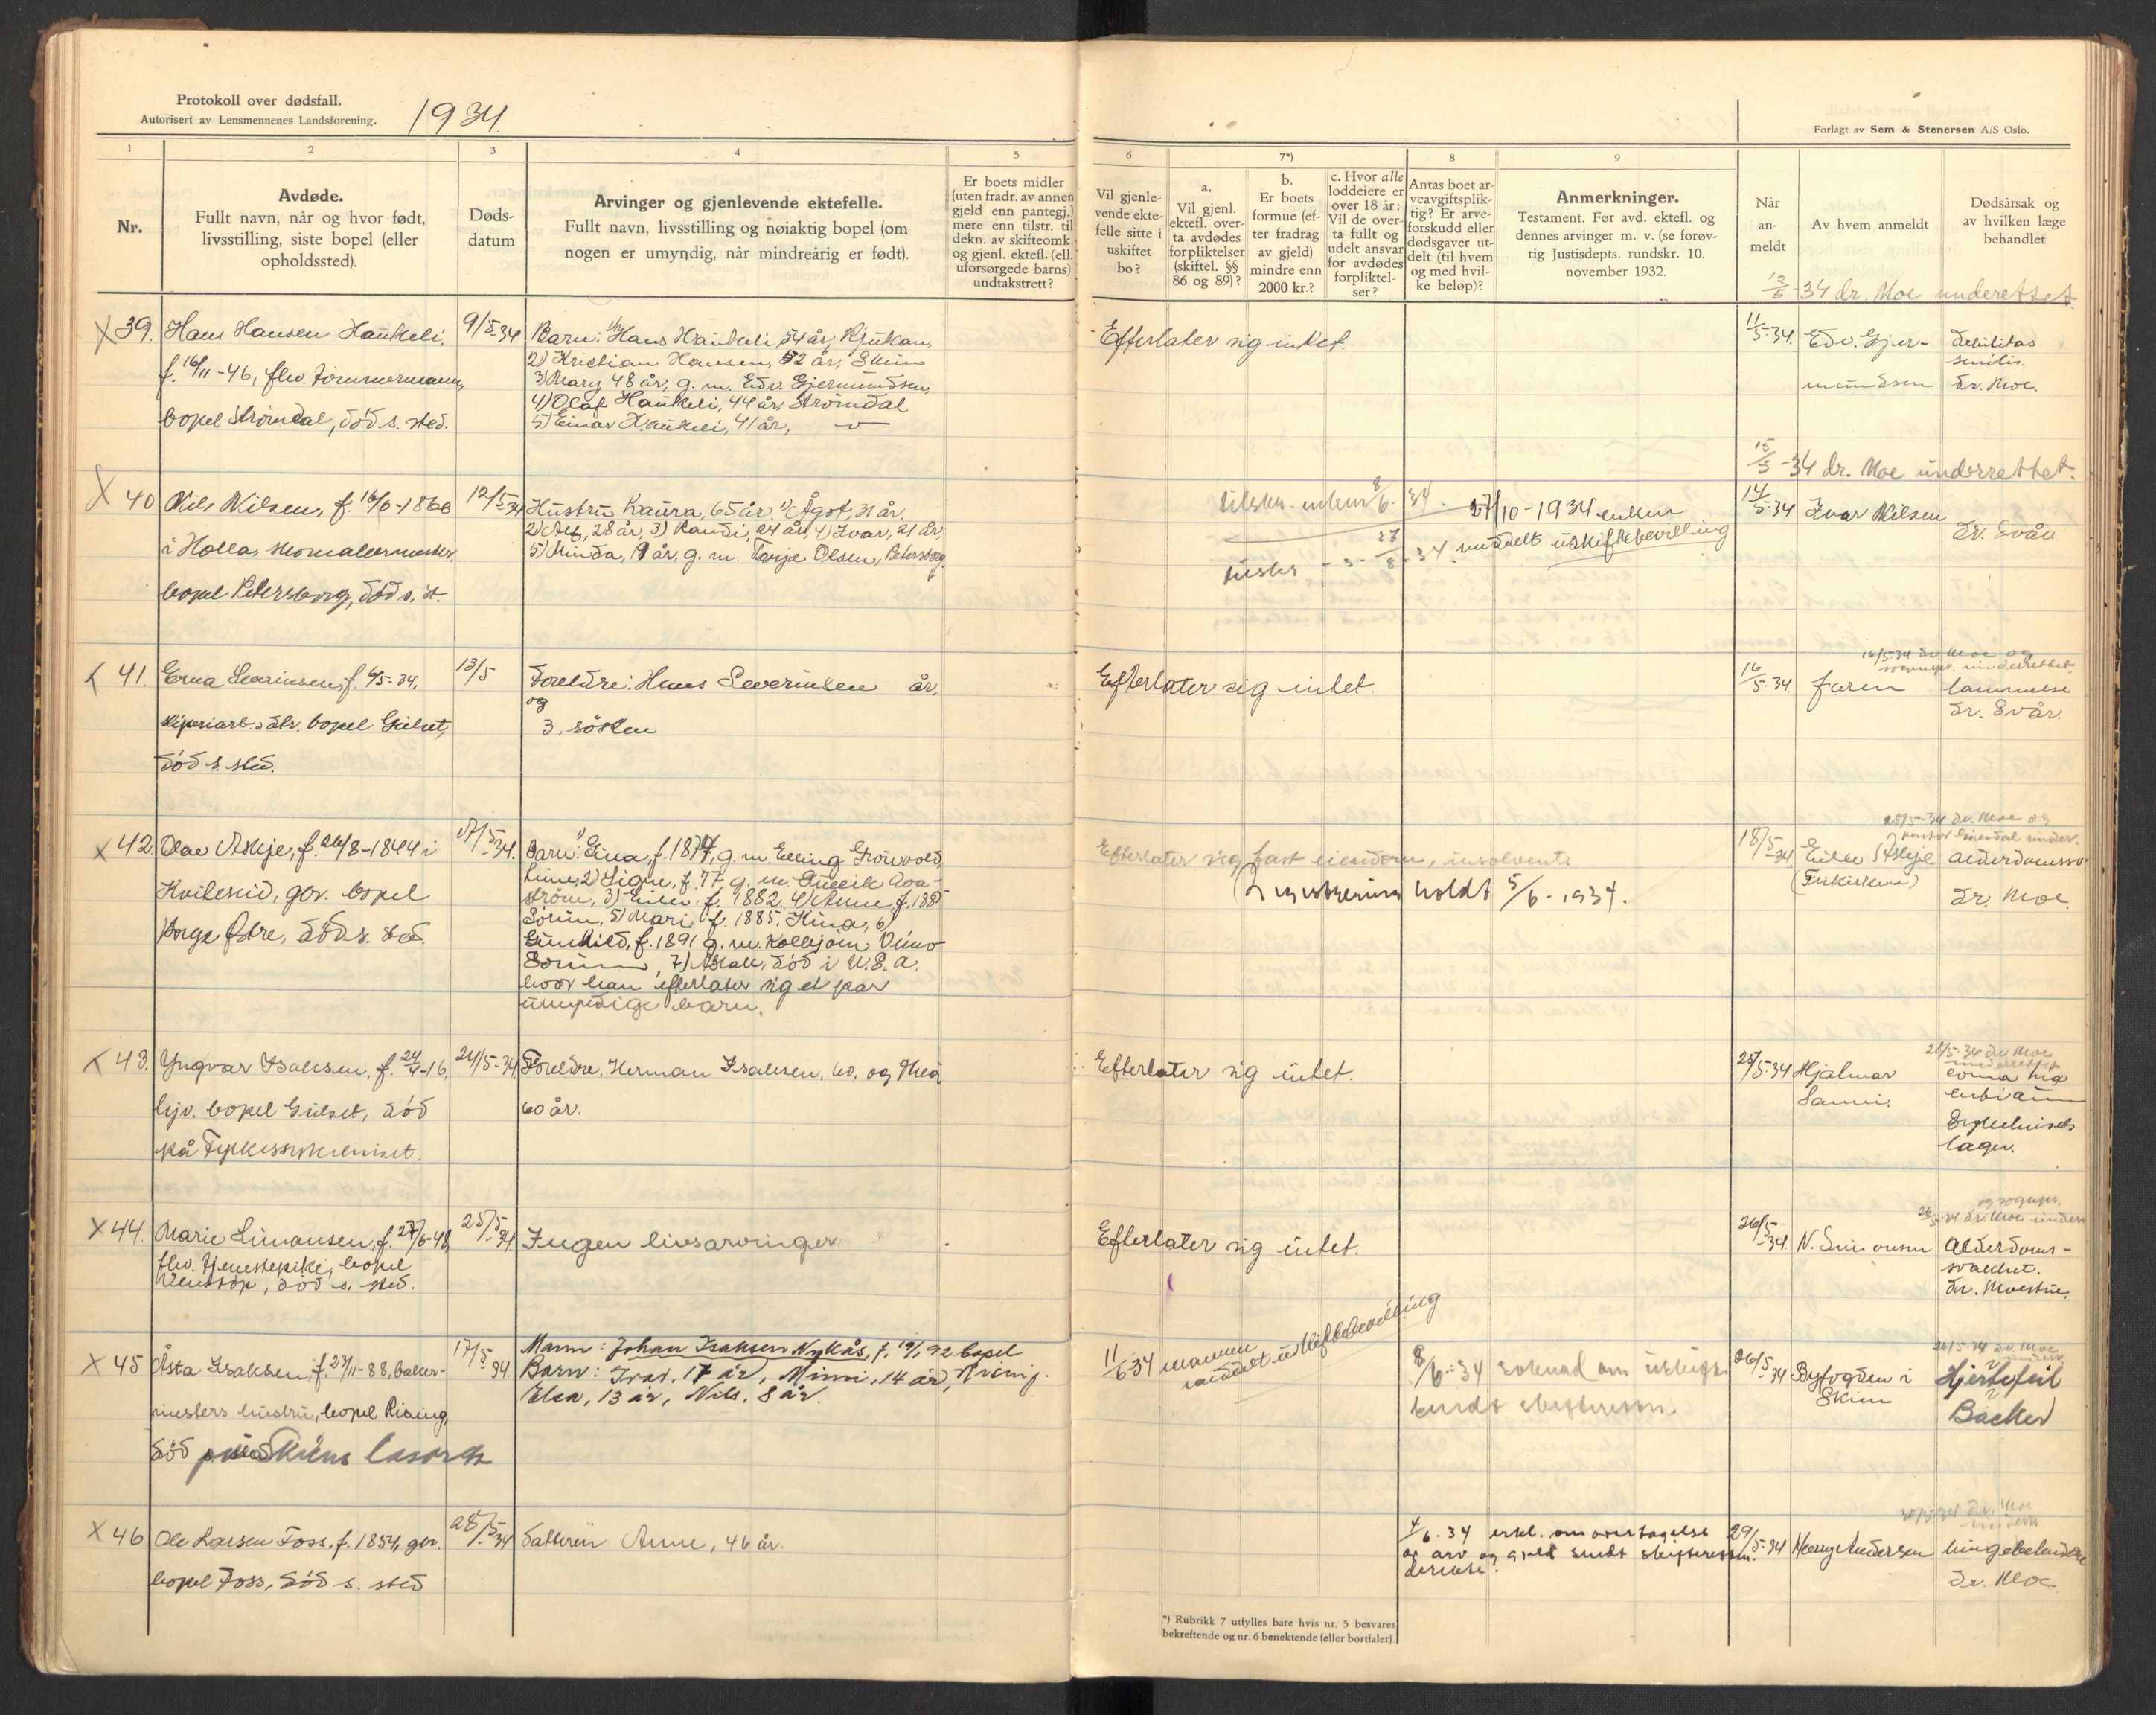 Protokoll over dødsfall.
Autorisert av Lensmennenes Landsforening.
1934.
1
2
3
4
5
Nr.
Avdøde.
Fullt navn, når og hvor født,
livsstilling, siste bopel (eller
opholdssted).
Døds-
datum
Arvinger og gjenlevende ektefelle.
Fullt navn, livsstilling og nøiaktig bopel (om
nogen er umyndig, når mindreårig er født).
Er boets midler
(uten fradr. av annen
gjeld enn pantegj.)
mere enn tilstr. til
dekn. av skifteomk.
og gjenl. ektefl. (ell.
uforsørgede barns)
undtakstrett?
X 39.
Hans Hansen Haukeli,
f. 16/11-46, flv. tømmermann,
bopel Strømdal, død s. sted.
9/5-34
Barn: 1) Hans Haukeli, 54 år, Rjukan,
2) Kristian Hansen, 52 år, Skien
3) Mary 48 år, g. m. Edv. Gjermundsen,
4) Olaf Haukeli, 44 år, Strømdal
5) Einar Haukeli, 41 år, —
X 40
Nils Nilsen, f. 16/6-1868
i Holla, skomakermester,
bopel Petersborg, død s. st.
12/5-34
Hustru Laura, 65 år. 1) Ågot, 31 år,
2) Alf, 28 år, 3) Randi, 24 år, 4) Ivar, 21 år,
5) Minda, år, g. m. Tarje Olsen, Petersborg
X 41.
Erna Severinsen, f. 6/5-34,
sliperiarb.s dtr. bopel Gulset,
død s. sted.
13/5
Foreldre: Hans Severinsen år,
og
3. søsken
X 42.
Olav Askje, f. 24/8-1844 i
Kviteseid, gbr. bopel
Borge Østre, død s. sted
17/5-34.
Barn: 1) Gina, f. 1877, g. m. Elling Grönvold
2) Signe, f. 77 g. m.
3) Eilev, f. 1882. 4) Anne, f. 188
5) Mari f. 1885, Kina, 6)
Gunhild, f. 1891 g. m. Kolbjørn
7) Aslak, død i U.S.A.
hvor han efterlater sig et par
umyndige barn.
X 43.
Yngvar Isaksen, f. 24/4-16,
bopel Gulset, død
på Fylkessykehuset.
24/5-34
Foreldre, Herman Isaksen, 60. og Thea
60 år.
X 44.
Marie Simonsen, f. 27/6-48,
flv. tjenestepike, bopel
Venstøp, død s. sted.
25/5-34.
Ingen livsarvinger
X 45
Åsta Isaksen, f. 27/11-88, baker-
mesters hustru, bopel Rising,
død på Skiens lasarett
17/5-34.
Mann: Johan Isaksen Nykås, f. 19/1 92 bopel
Barn: Ivar, 17 år, Mimi, 14 år, Rising.
Elsa, 13 år, Nils, 8 år.
X 46
Ole Larsen Foss, f. 1854, gbr.
bopel Foss, død s. sted
28/5-34
Datteren Anne, 46 år.
Forlagt av Sem & Stenersen A/S Oslo.
6
7*)
8
9
Vil gjenle-
vende ekte-
felle sitte i
uskiftet
bo?
a.
Vil gjenl.
ektefl. over-
ta avdødes
forpliktelser
(skiftel. §§
86 og 89)?
b.
Er boets
formue (ef-
ter fradrag
av gjeld)
mindre enn
2000 kr.?
c. Hvor alle
loddeiere er
over 18 år:
Vil de over-
ta fullt og
udelt ansvar
for avdødes
forpliktel-
ser?
Antas boet ar-
veavgiftsplik-
tig? Er arve-
forskudd eller
dødsgaver ut-
delt (til hvem
og med hvil-
ke beløp)?
Anmerkninger.
Testament. Før avd. ektefl. og
dennes arvinger m. v. (se forøv-
rig Justisdepts. rundskr. 10.
november 1932.
Når
an-
meldt
Av hvem anmeldt
Dødsårsak og
av hvilken læge
behandlet
12/5-34 dr. Moe underettet.
Efterlater sig intet.
11/5-34.
Edv. Gjer-
mundsen
Debilitas
senilis.
Dr. Moe.
15/5-34 dr. Moe underrettet.
tilskr. enken 8/6.34.
27/10-1934 enken
meddelt uskiftebevilling
14/5-34
Ivar Nilsen
Dr. Svån
16/5-34 dr. Moe og
sognepr. underrettet.
Efterlater sig intet.
16/5-34.
faren
lammelse
Dr. Svån.
18/5-34 dr. Moe og
Efterlater sig fast eiendom, insolvent.
Registrering holdt 5/6-1934.
18/5-34
Eilev Askje
(Frikirken)
alderdomssv.
Dr. Moe.
28/5-34 dr. Moe
underrettet
Efterlater sig intet.
25/5-34
Hjalmar
og sognepr.
26/5-34 dr. Moe underr.
Efterlater sig intet.
26/5-34.
N. Simonsen
Alderdoms-
svakhet.
Dr. Moestue.
11/6-34 mannen
meddelt uskiftebevilling
8/6-34 søknad om uskifte
sendt skifteretten.
26/5-34
Byfogden i
Skien
26/5-34 dr. Moe
underr.
Hjertefeil
Backer
4/6.34 erkl. om overtagelse
av arv og gjeld sendt skifteretten.
29/5-34
Harry Andersen
30/5-34 dr. Moe
underr.
lungebetendelse
Dr. Moe
*) Rubrikk 7 utfylles bare hvis nr. 5 besvares
bekreftende og nr. 6 benektende (eller bortfaler)